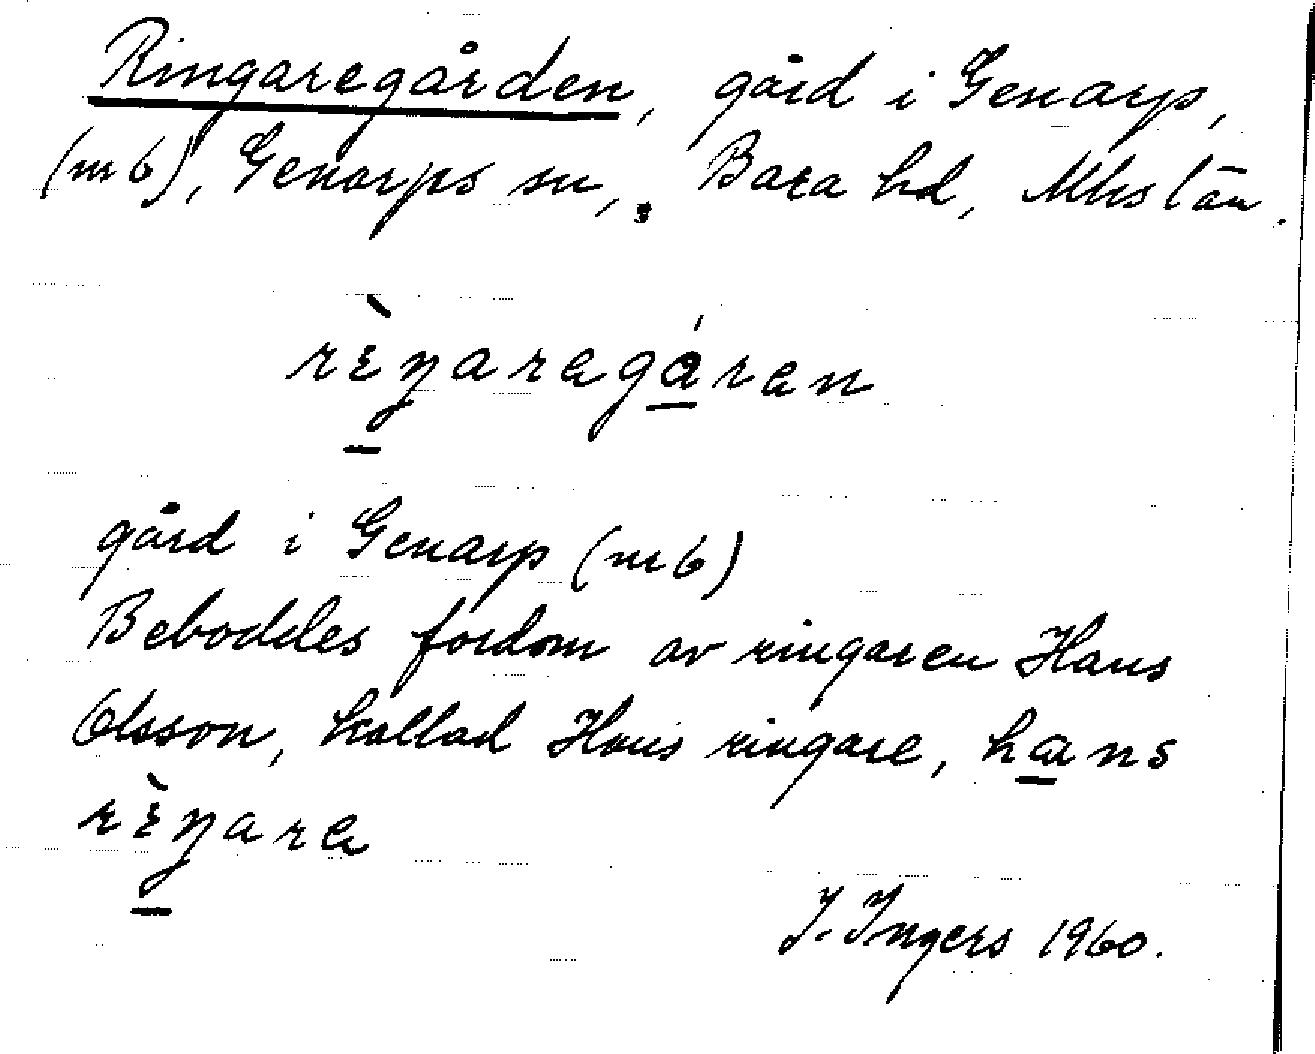 Ringaregården, gård i Genarp,
(nr 6), Genarps sn, Bara hd, Mlhs län.
rèŋaregáren
gård i Genarp (nr 6)
Beboddes fordom av ringaren Hans
Olsson, kallad Hans ringare, hans
rèŋare
I. Ingers 1960.